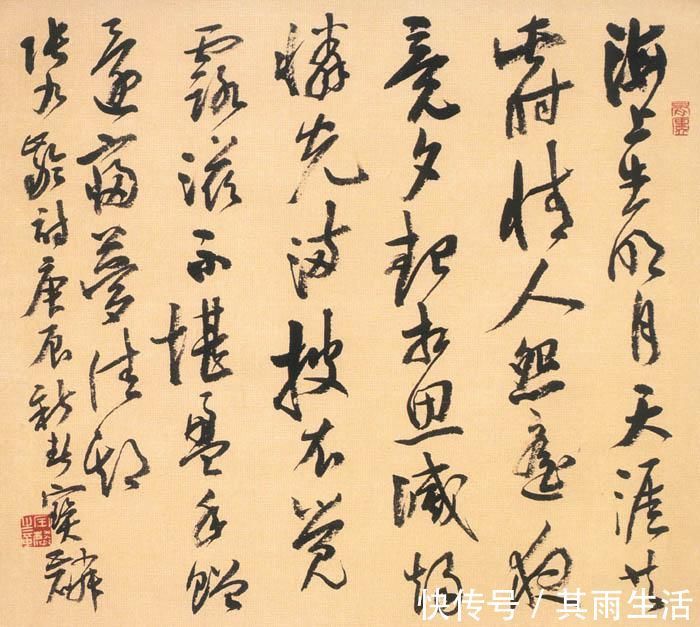 海上生明月天涯共
此时情人怨遥夜
竟夕起相思灭烛
怜光满披衣觉
露滋不堪盈手赠
还寝梦佳期
张九龄诗庚辰新春宝麟
快传号 / 其雨生活